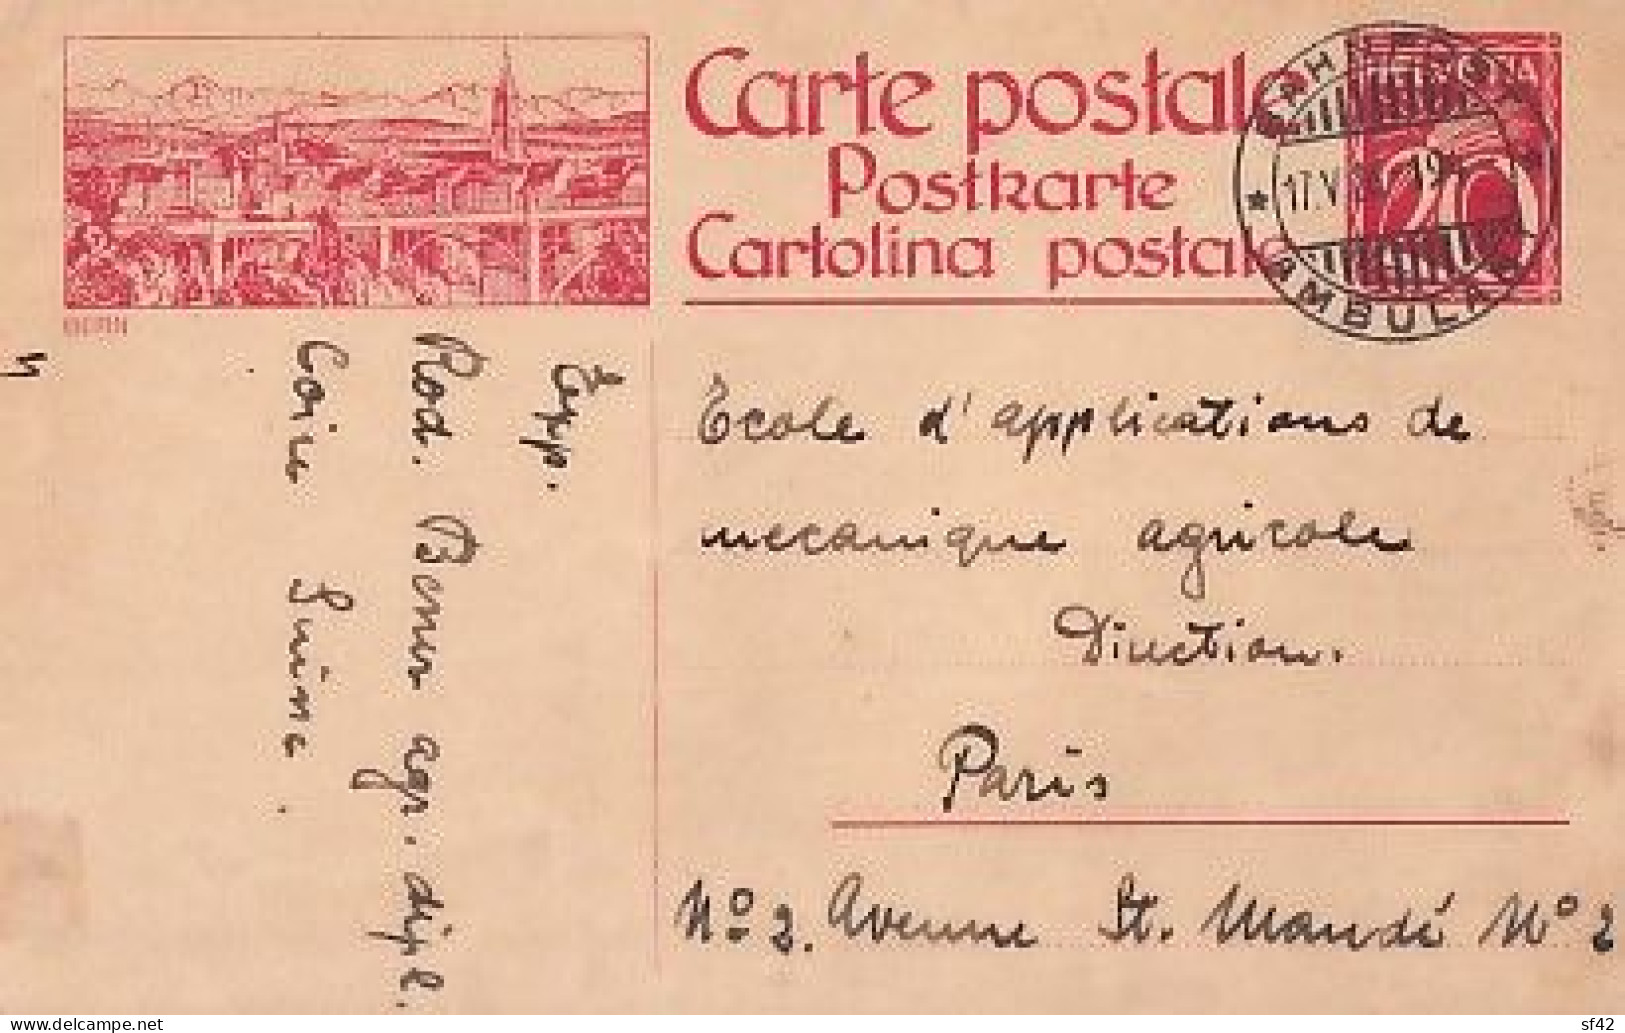 Carte postale
Postkarte
Cartolina postale
HELVETIA
20
17.V.
AMBULANT
BERN
Exp.
Rod. agr. dipl.
Ecole d'applications de
mecanique agricole
Direction.
Paris
No 2. Avenue St. Mandé No 2
delcampe.net
sf42